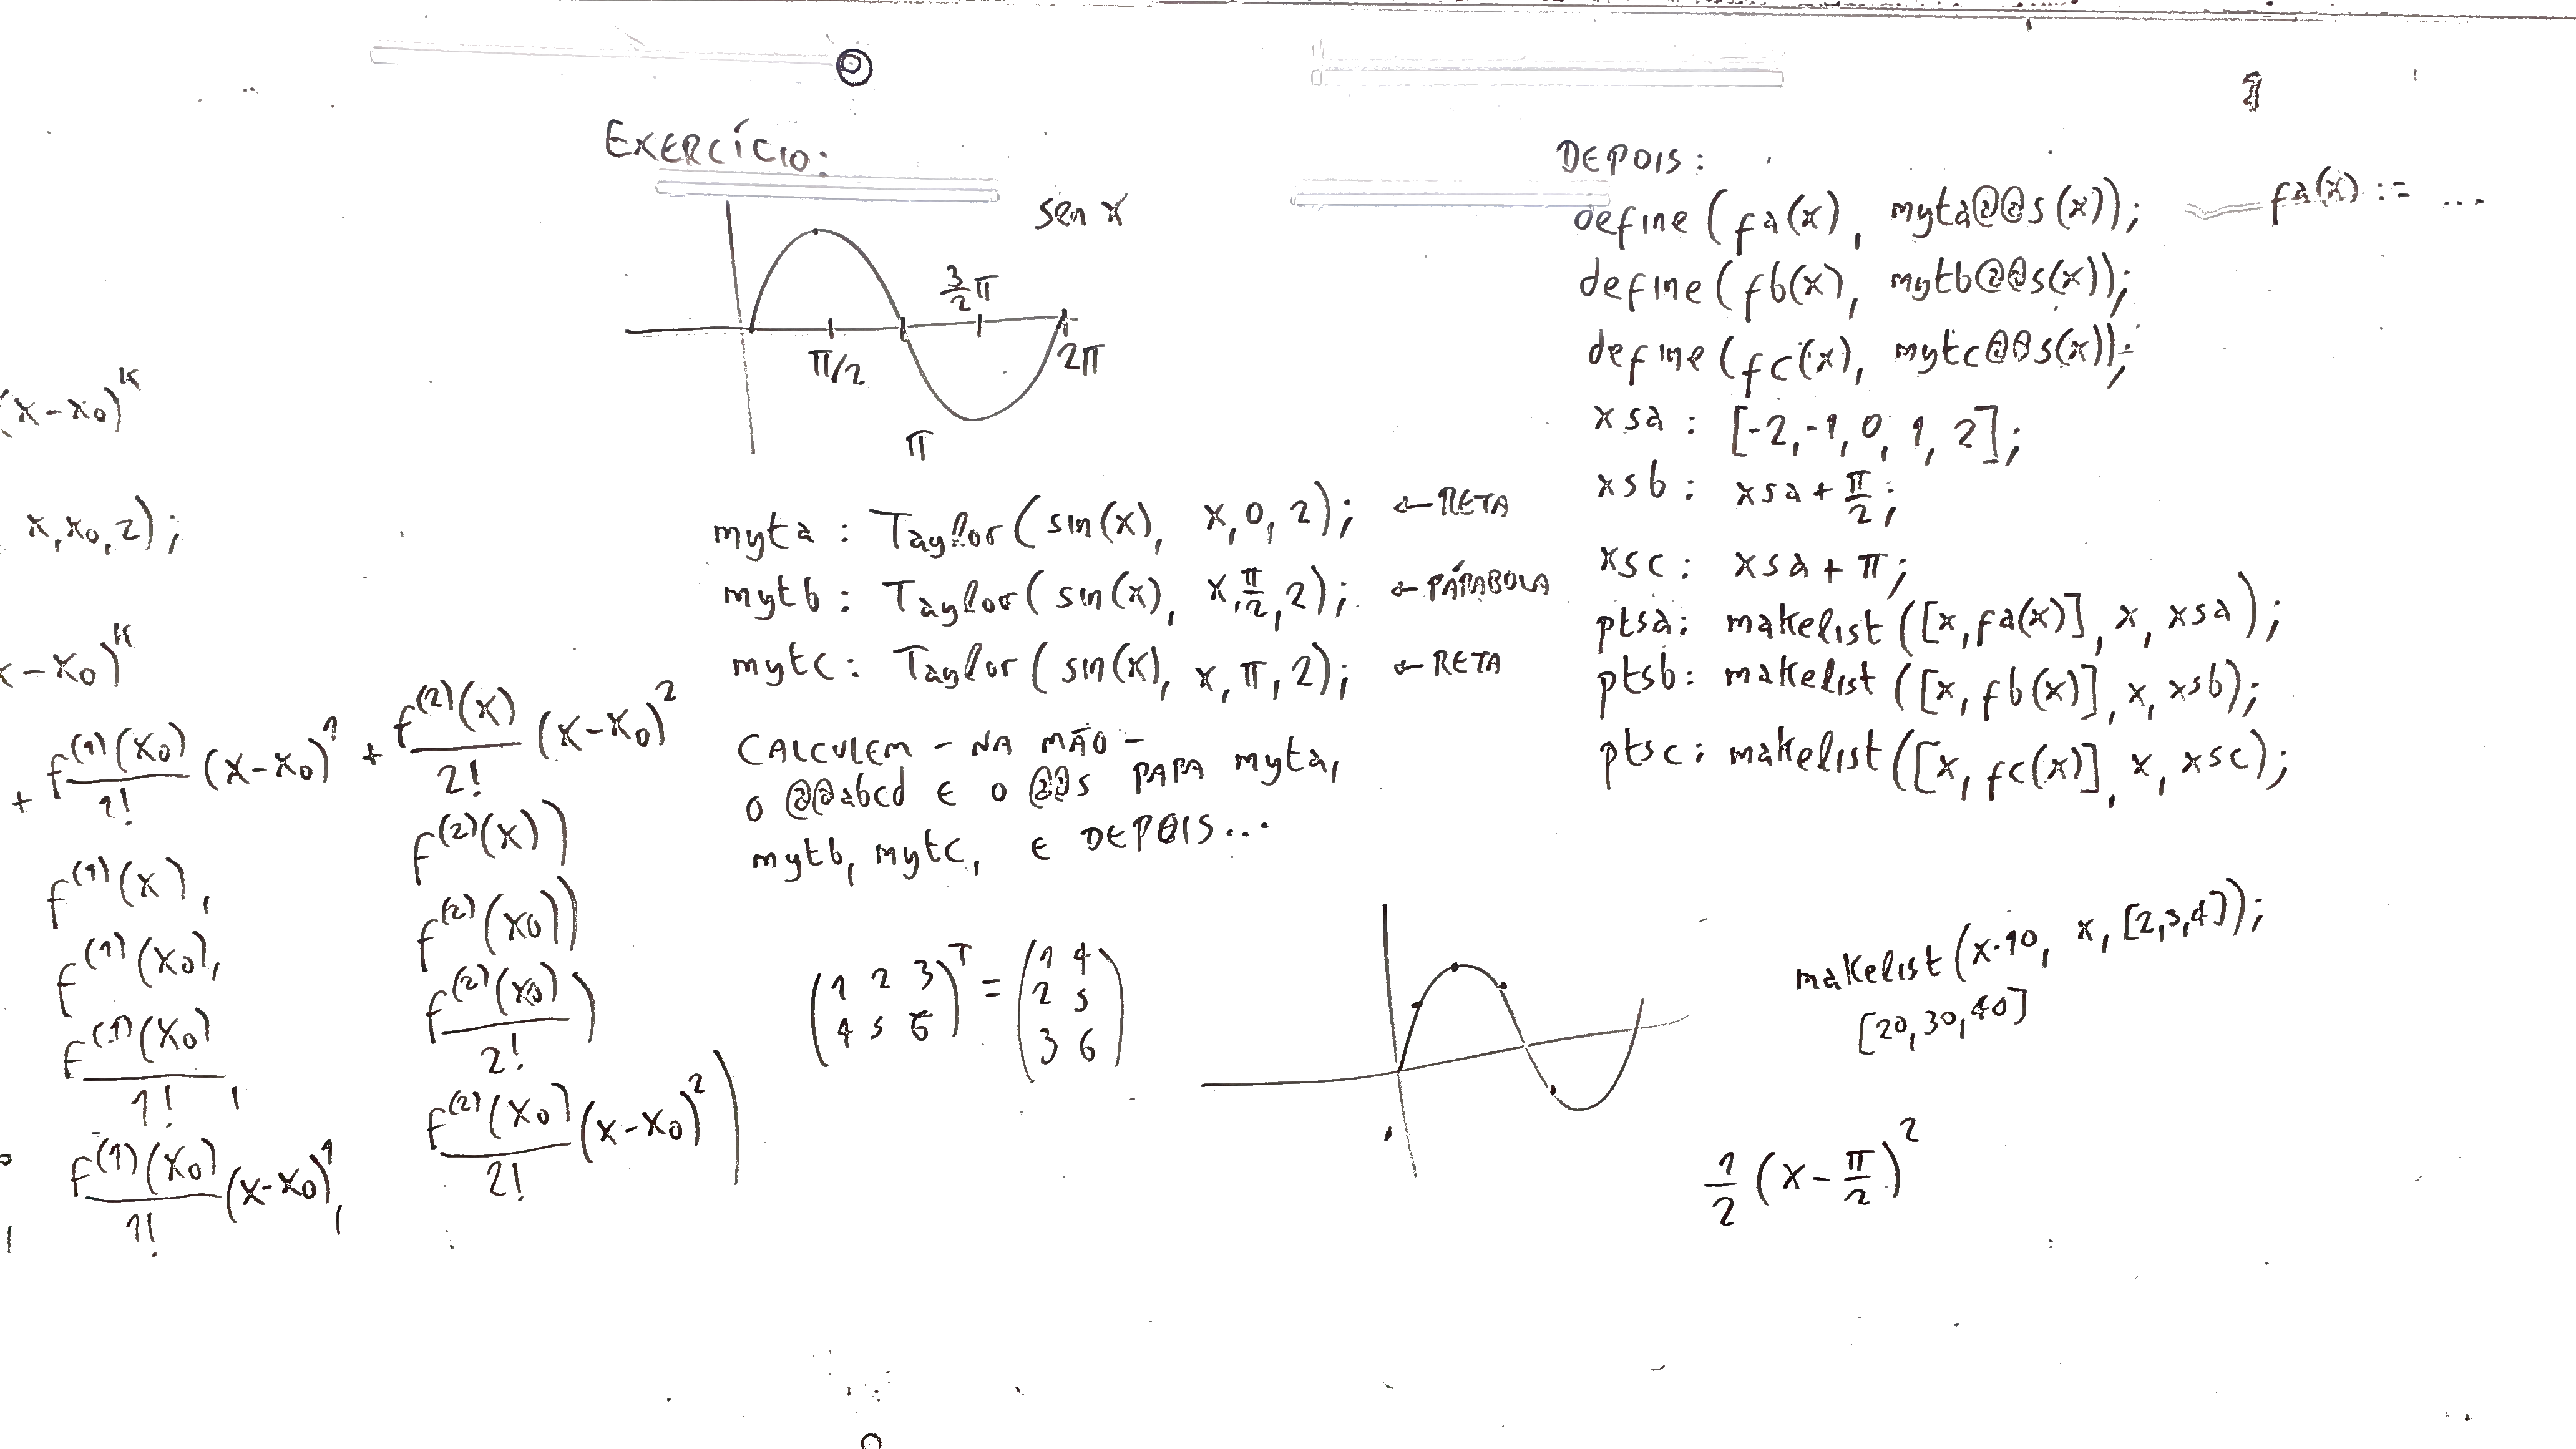 (x-x₀)ᴷ
x, x₀, 2);
x-x₀)ᴷ
+ f⁽¹⁾(x₀)/1! (x-x₀)¹ + f⁽²⁾(x)/2! (x-x₀)²
f⁽¹⁾(x), f⁽²⁾(x))
f⁽¹⁾(x₀), f⁽²⁾(x₀))
f⁽¹⁾(x₀)/1! , f⁽²⁾(x₀)/2! )
f⁽¹⁾(x₀)/1! (x-x₀)¹, f⁽²⁾(x₀)/2! (x-x₀)² )
EXERCÍCIO:
sen x
π/2
π
3/2 π
2π
myta : Taylor(sin(x), x, 0, 2); ← RETA
mytb : Taylor(sin(x), x, π/2, 2); ← PARÁBOLA
mytc : Taylor(sin(x), x, π, 2); ← RETA
CALCULEM - NA MÃO -
O @@abcd E O @@s PARA myta,
mytb, mytc, E DEPOIS...
(1 2 3
4 5 6)ᵀ = (1 4
2 5
3 6)
DEPOIS:
define (fa(x), myta@@s(x)); fa(x) := ...
define (fb(x), mytb@@s(x));
define (fc(x), mytc@@s(x));
xsa : [-2,-1, 0, 1, 2];
xsb : xsa + π/2;
xsc : xsa + π;
ptsa: makelist ([x,fa(x)], x, xsa);
ptsb: makelist ([x,fb(x)], x, xsb);
ptsc: makelist ([x,fc(x)], x, xsc);
makelist (x·10, x, [2,3,4]);
[20,30,40]
1/2 (x - π/2)²